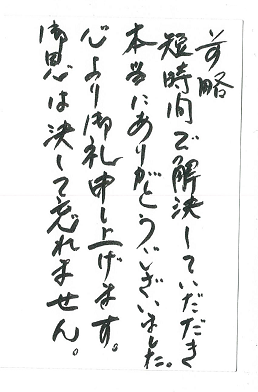 前略
短時間で解決していただき
本当にありがとうございました。
心より御礼申し上げます。
御恩は決して忘れません。